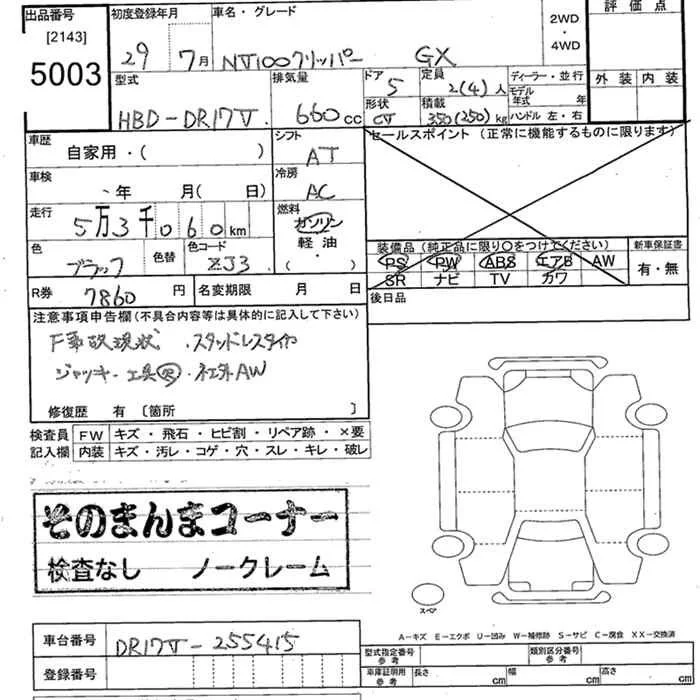 出品番号
[2143]
5003
初度登録年月
29 7月
車名・グレード
NV100クリッパー GX
2WD
・
4WD
評価点
外装 内装
型式
HBD-DR17V
排気量
660cc
ドア
5
定員
2(4)人
形状
CV
積載
350(250)kg
ディーラー・並行
モデル年式 年
ハンドル 左・右
車歴
自家用・( )
シフト
AT
車検
年 月( 日)
冷房
AC
走行
5万3千060km
燃料
ガソリン
軽油
・( )
色
ブラック
色替
色コード
ZJ3
R券
7860円
名変期限 月 日
セールスポイント (正常に機能するものに限ります)
装備品(純正品に限り○をつけてください)
PS PW ABS エアB AW
SR ナビ TV カワ
新車保証書
有・無
後日品
注意事項申告欄(不具合内容等は具体的に記入して下さい)
F事故現状 .スタッドレスタイヤ
ジャッキ-工具 .社外AW
修復歴 有 〔箇所 〕
検査員
記入欄
FW キズ・飛石・ヒビ割・リペア跡・×要
内装 キズ・汚レ・コゲ・穴・スレ・キレ・破レ
そのまんまコーナー
検査なし ノークレーム
スペア
A-キズ E-エクボ U-凹み W-補修跡 S-サビ C-腐食 XX-交換済
車台番号
DR17V-255415
登録番号
型式指定番号
参考
類別区分番号
参考
車庫証明用
参考
長さ cm 幅 cm 高さ cm